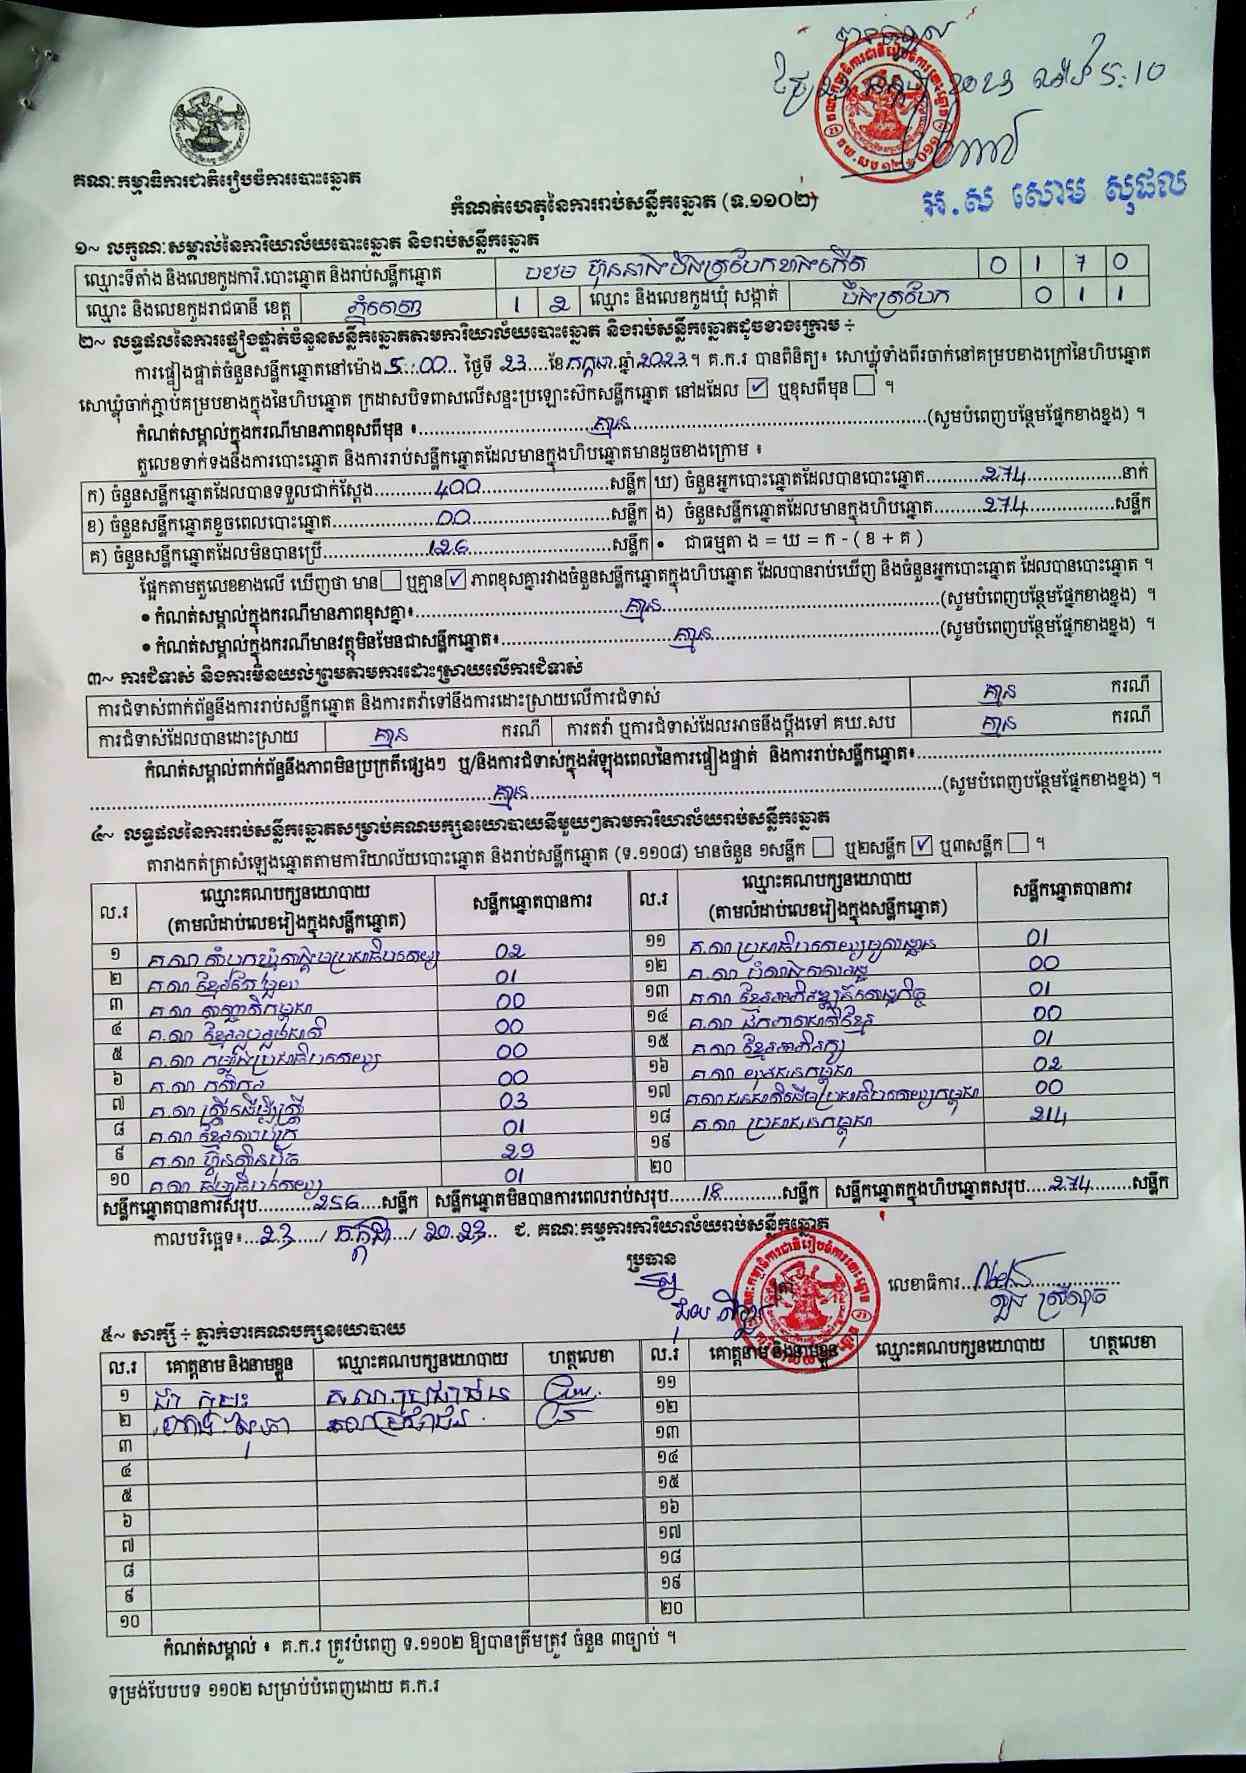 គណៈកម្មាធិការជាតិរៀបចំការបោះឆ្នោត
5:10
អ.ស សោម សុផល
កំណត់ហេតុនៃការរាប់សន្លឹកឆ្នោត (ទ.១១០២)
១~ លក្ខណៈសម្គាល់នៃការិយាល័យបោះឆ្នោត និងរាប់សន្លឹកឆ្នោត
ឈ្មោះទីតាំង និងលេខកូដការិ.បោះឆ្នោត និងរាប់សន្លឹកឆ្នោត បឋម ហ៊ុនសែនបឹងត្របែកខាងកើត 0 1 7 0
ឈ្មោះ និងលេខកូដរាជធានី ខេត្ត ភ្នំពេញ 1 2 ឈ្មោះ និងលេខកូដឃុំ សង្កាត់ បឹងត្របែក 0 1 1
២~ លទ្ធផលនៃការផ្ទៀងផ្ទាត់ចំនួនសន្លឹកឆ្នោតតាមការិយាល័យបោះឆ្នោត និងរាប់សន្លឹកឆ្នោតដូចខាងក្រោម ÷
ការផ្ទៀងផ្ទាត់ចំនួនសន្លឹកឆ្នោតនៅម៉ោង 5:00 ថ្ងៃទី 23 ខែ កក្កដា ឆ្នាំ 2023។ គ.ក.រ បានពិនិត្យ៖ សោឃ្លុំទាំងពីរចាក់នៅគម្របខាងក្រៅនៃហិបឆ្នោត
សោឃ្លុំចាក់ភ្ជាប់គម្របខាងក្នុងនៃហិបឆ្នោត ក្រដាសបិទពាសលើសន្ទះប្រឡោះស៊កសន្លឹកឆ្នោត នៅដដែល ☑ ឬខុសពីមុន ☐ ។
កំណត់សម្គាល់ក្នុងករណីមានភាពខុសពីមុន ៖ គ្មាន (សូមបំពេញបន្ថែមផ្នែកខាងខ្នង) ។
តួលេខទាក់ទងនឹងការបោះឆ្នោត និងការរាប់សន្លឹកឆ្នោតដែលមានក្នុងហិបឆ្នោតមានដូចខាងក្រោម ៖
ក) ចំនួនសន្លឹកឆ្នោតដែលបានទទួលជាក់ស្តែង 400 សន្លឹក ឃ) ចំនួនអ្នកបោះឆ្នោតដែលបានបោះឆ្នោត 274 នាក់
ខ) ចំនួនសន្លឹកឆ្នោតខូចពេលបោះឆ្នោត 00 សន្លឹក ង) ចំនួនសន្លឹកឆ្នោតដែលមានក្នុងហិបឆ្នោត 274 សន្លឹក
គ) ចំនួនសន្លឹកឆ្នោតដែលមិនបានប្រើ 126 សន្លឹក • ជាធម្មតា ង = ឃ = ក - ( ខ + គ )
ផ្អែកតាមតួលេខខាងលើ ឃើញថា មាន ☐ ឬគ្មាន ☑ ភាពខុសគ្នារវាងចំនួនសន្លឹកឆ្នោតក្នុងហិបឆ្នោត ដែលបានរាប់ឃើញ និងចំនួនអ្នកបោះឆ្នោត ដែលបានបោះឆ្នោត ។
• កំណត់សម្គាល់ក្នុងករណីមានភាពខុសគ្នា៖ គ្មាន (សូមបំពេញបន្ថែមផ្នែកខាងខ្នង) ។
• កំណត់សម្គាល់ក្នុងករណីមានវត្ថុមិនមែនជាសន្លឹកឆ្នោត៖ គ្មាន (សូមបំពេញបន្ថែមផ្នែកខាងខ្នង) ។
៣~ ការជំទាស់ និងការមិនយល់ព្រមតាមការដោះស្រាយលើការជំទាស់
ការជំទាស់ពាក់ព័ន្ធនឹងការរាប់សន្លឹកឆ្នោត និងការតវ៉ាទៅនឹងការដោះស្រាយលើការជំទាស់ គ្មាន ករណី
ការជំទាស់ដែលបានដោះស្រាយ គ្មាន ករណី ការតវ៉ា ឬការជំទាស់ដែលអាចនឹងប្តឹងទៅ គឃ.សប គ្មាន ករណី
កំណត់សម្គាល់ពាក់ព័ន្ធនឹងភាពមិនប្រក្រតីផ្សេងៗ ឬ/និងការជំទាស់ក្នុងអំឡុងពេលនៃការផ្ទៀងផ្ទាត់ និងការរាប់សន្លឹកឆ្នោត៖
គ្មាន (សូមបំពេញបន្ថែមផ្នែកខាងខ្នង) ។
៤~ លទ្ធផលនៃការរាប់សន្លឹកឆ្នោតសម្រាប់គណបក្សនយោបាយនីមួយៗតាមការិយាល័យរាប់សន្លឹកឆ្នោត
តារាងកត់ត្រាសំឡេងឆ្នោតតាមការិយាល័យបោះឆ្នោត និងរាប់សន្លឹកឆ្នោត (ទ.១១០៨) មានចំនួន ១សន្លឹក ☐ ឬ២សន្លឹក ☑ ឬ៣សន្លឹក ☐ ។
ល.រ ឈ្មោះគណបក្សនយោបាយ (តាមលំដាប់លេខរៀងក្នុងសន្លឹកឆ្នោត) សន្លឹកឆ្នោតបានការ ល.រ ឈ្មោះគណបក្សនយោបាយ (តាមលំដាប់លេខរៀងក្នុងសន្លឹកឆ្នោត) សន្លឹកឆ្នោតបានការ
១ គ.ណ សំបុកឃ្មុំសង្គមប្រជាធិបតេយ្យ 02 ១១ គ.ណ ប្រជាធិបតេយ្យមូលដ្ឋាន 01
២ គ.ណ ខ្មែររួបរួម 01 ១២ គ.ណ 00
៣ គ.ណ សញ្ជាតិកម្ពុជា 00 ១៣ គ.ណ ខ្មែរអភិវឌ្ឍន៍សេដ្ឋកិច្ច 01
៤ គ.ណ ខ្មែររួបរួមជាតិ 00 ១៤ គ.ណ ឯកភាពជាតិខ្មែរ 00
៥ គ.ណ កម្លាំងប្រជាធិបតេយ្យ 00 ១៥ គ.ណ ខ្មែរអភិរក្ស 01
៦ គ.ណ កសិករ 00 ១៦ គ.ណ យុវជនកម្ពុជា 02
៧ គ.ណ ស្ត្រីដើម្បីស្ត្រី 03 ១៧ គ.ណ ជនជាតិដើមប្រជាធិបតេយ្យកម្ពុជា 00
៨ គ.ណ ខ្មែរឈប់ក្រ 01 ១៨ គ.ណ ប្រជាជនកម្ពុជា 214
៩ គ.ណ ហ៊្វុនស៊ិនប៉ិច 29 ១៩
១០ គ.ណ ធម្មាធិបតេយ្យ 01 ២០
សន្លឹកឆ្នោតបានការសរុប 256 សន្លឹក សន្លឹកឆ្នោតមិនបានការពេលរាប់សរុប 18 សន្លឹក សន្លឹកឆ្នោតក្នុងហិបឆ្នោតសរុប 274 សន្លឹក
កាលបរិច្ឆេទ៖ 23 / កក្កដា / 2023 ជ. គណៈកម្មការការិយាល័យរាប់សន្លឹកឆ្នោត
ប្រធាន លេខាធិការ
៥~ សាក្សី ÷ ភ្នាក់ងារគណបក្សនយោបាយ
ល.រ គោត្តនាម និងនាមខ្លួន ឈ្មោះគណបក្សនយោបាយ ហត្ថលេខា ល.រ គោត្តនាម និងនាមខ្លួន ឈ្មោះគណបក្សនយោបាយ ហត្ថលេខា
១ ១១
២ ១២
៣ ១៣
៤ ១៤
៥ ១៥
៦ ១៦
៧ ១៧
៨ ១៨
៩ ១៩
១០ ២០
កំណត់សម្គាល់ ៖ គ.ក.រ ត្រូវបំពេញ ទ.១១០២ ឱ្យបានត្រឹមត្រូវ ចំនួន ៣ច្បាប់ ។
ទម្រង់បែបបទ ១១០២ សម្រាប់បំពេញដោយ គ.ក.រ